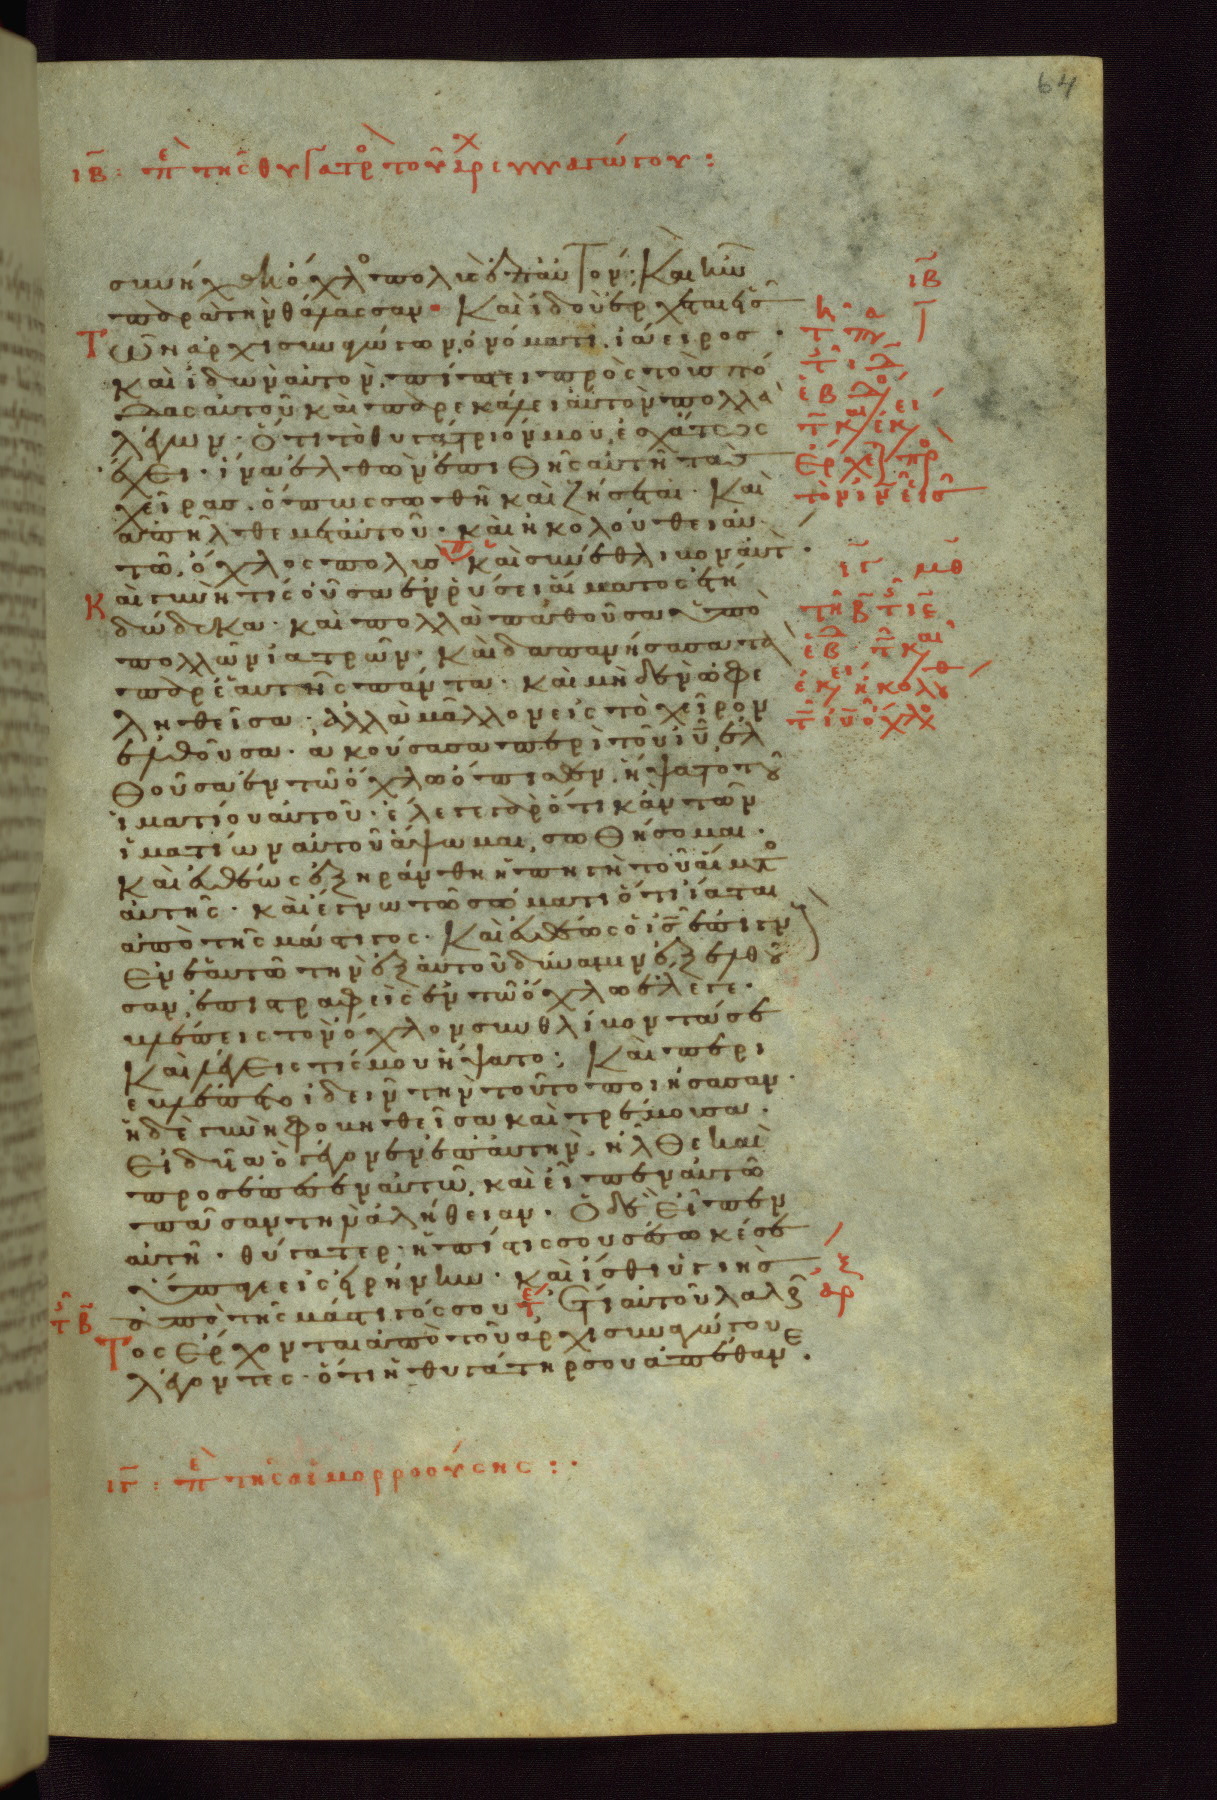 64
ιβ: πε τῆς θυγατρο τοῦ ἀρχισυναγώγου:
συνήχθη ὄχλος πολὺς ἐπ αὐτόν· Καὶ ἦν
παρὰ τὴν θάλασσαν· Καὶ ἰδοὺ ἔρχεται εἷς
τῶν ἀρχισυναγώγων, ὀνόματι ἰάειρος·
καὶ ἰδὼν αὐτὸν, πίπτει πρὸς τοὺς πό
δας αὐτοῦ καὶ παρεκάλει αὐτὸν πολλὰ
λέγων· ὅτι τὸ θυγάτριόν μου, ἐσχάτως
ἔχει· ἵνα ἐλθὼν ἐπιθῇς αὐτῇ τὰς
χεῖρας· ὅπως σωθῇ καὶ ζήσεται· Καὶ
ἀπῆλθε μετ αὐτοῦ· καὶ ἠκολούθει αὐ
τῶ, ὄχλος πολύς· καὶ συνέθλιβον αὐτόν·
Καὶ γυνή τις οὖσα ἐν ῥύσει αἵματος ἔτη
δώδεκα· καὶ πολλὰ παθοῦσα ὑπὸ
πολλῶν ἰατρῶν· καὶ δαπανήσασα τὰ
παρ ἑαυτῆς πάντα· καὶ μηδὲν ὠφε
ληθεῖσα· ἀλλὰ μᾶλλον εἰς τὸ χεῖρον
ἐλθοῦσα· ἀκούσασα περὶ τοῦ ιυ ἐλ
θοῦσα ἐν τῶ ὄχλω ὄπισθεν, ἥψατο τοῦ
ἱματίου αὐτοῦ· ἔλεγε γὰρ ὅτι κἂν τῶν
ἱματίων αὐτοῦ ἅψωμαι, σωθήσομαι·
Καὶ εὐθέως ἐξηράνθη ἡ πηγὴ τοῦ αἵματος
αὐτῆς· καὶ ἔγνω τῶ σώματι ὅτι ἴαται
ἀπὸ τῆς μάστιγος· Καὶ εὐθέως ὁ ις ἐπιγν
ἐν ἑαυτῶ τὴν ἐξ αὐτοῦ δύναμιν ἐξελθοῦ
σαν, ἐπιστραφεὶς ἐν τῶ ὄχλω ἔλεγε·
βλέπεις τὸν ὄχλον συνθλίβοντά σε
Καὶ λέγεις τίς μου ἥψατο; Καὶ περι
εβλέπετο ἰδεῖν τὴν τοῦτο ποιήσασαν·
ἡ δὲ γυνὴ φοβηθεῖσα καὶ τρέμουσα·
εἰδυῖα ὃ γέγονεν ἐπ αὐτὴν, ἦλθε καὶ
προσέπεσεν αὐτῶ, καὶ εἶπεν αὐτῶ
πᾶσαν τὴν ἀλήθειαν· Ὁ δὲ εἶπεν
αὐτῇ· θύγατερ· ἡ πίστις σου σέσωκέ σε
ὕπαγε εἰς εἰρήνην· καὶ ἴσθι ὑγιὴς
ἀπὸ τῆς μάστιγός σου Ἔτι αὐτοῦ λαλοῦν
τος ἔρχονται ἀπὸ τοῦ ἀρχισυναγώγου
λέγοντες· ὅτι ἡ θυγάτηρ σου ἀπέθανε·
ιγ: πε τῆς αἱμορροούσης:·
ιβ
ιγ μθ